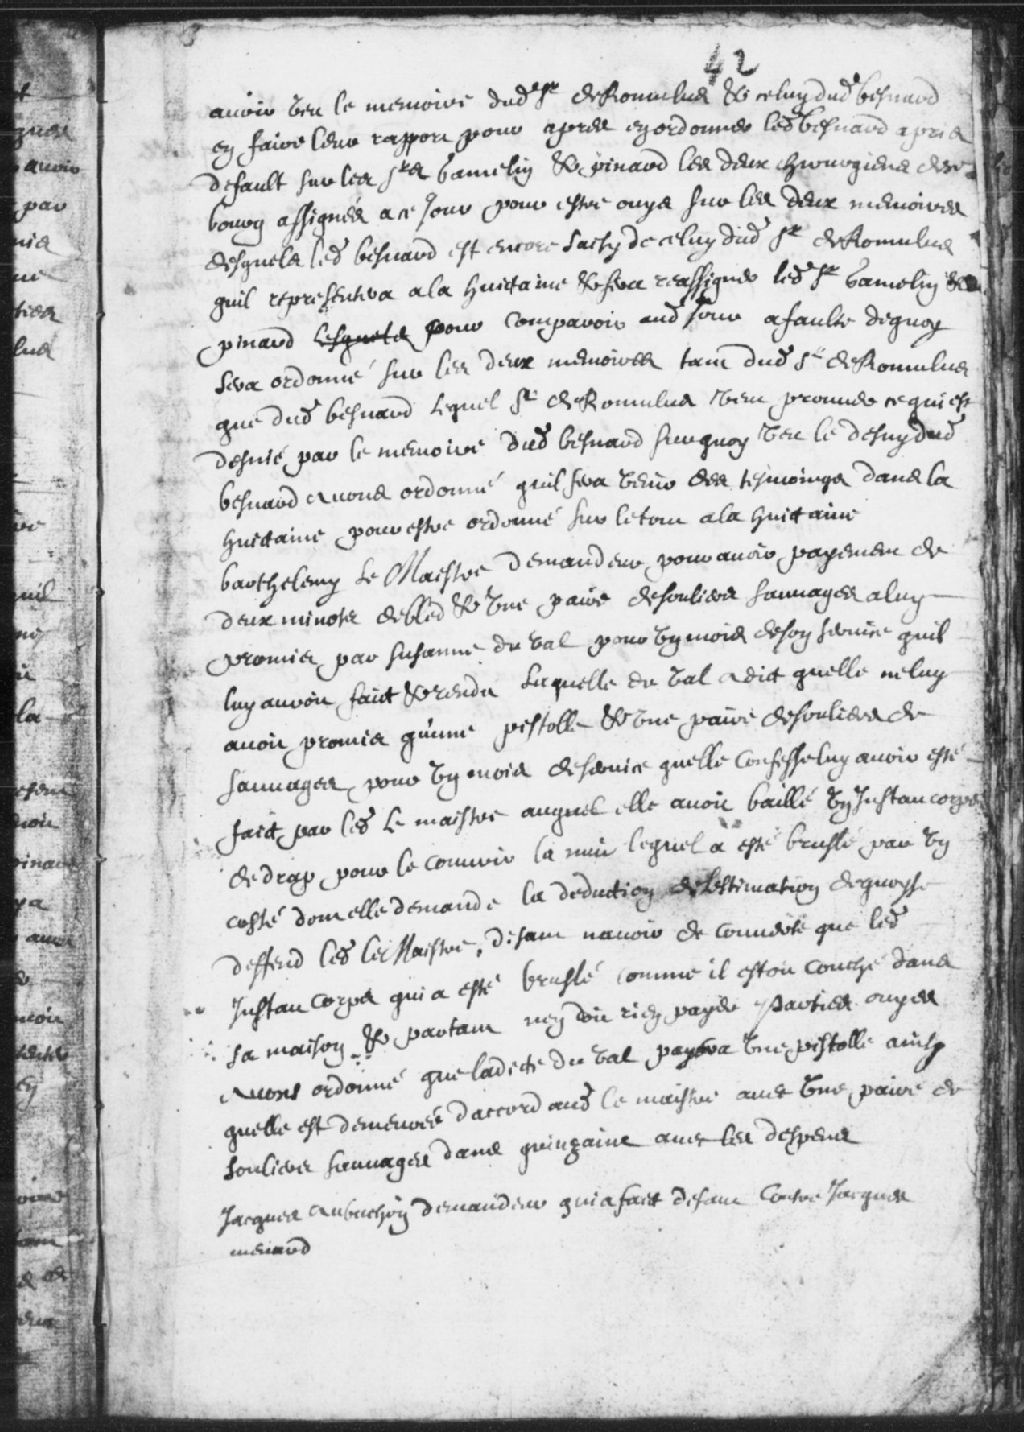 42
avoir veu le memoire dud Sr de Romulus & celuy dud besnard
en faire leur rapport pour apres en ordonner led besnard a pris
default sur les Srs Gamelin & pinard les deux chirurgiens de ce
bourg assignés a ce jour pour estre ouys sur les deux memoires
desquels led besnard est encore saisy de celuy dud Sr de Romulus
quil representera a la huictaine & fera reassigner led Sr Gamelin &
pinard lesquels pour comparoir aud jour a faulte dequoy
sera ordonné sur les deux memoires tant dud Sr de Romulus
que dud besnard lequel Sr de Romulus veut prouver ce qui est
desnié par le memoire dud besnard surquoy veu le desny dud
besnard avons ordonné quil fera venir des tesmoings dans la
huictaine pour estre ordonné sur le tout a la huictaine
barthelemy Le Maistre demandeur pour avoir payement de
deux minots de bled & une paire de souliers sauvages a luy
promis par susanne du val pour un mois de son service quil
luy avoit faict & rendu laquelle du val a dit quelle ne luy
avoit promis qu'une pistolle & une paire de souliers de
sauvages pour un mois de service quelle confesse luy avoir esté
faict par led Le maistre auquel elle avoit baillé un justaucorps
de drap pour le couvrir la nuit lequel a esté bruslé par un
costé dont elle demande la deduction de lestimation dequoy se
deffend led Le Maistre, disant navoir de couverte que led
Justaucorps qui a esté bruslé comme il estoit couché dans
sa maison & partant nen doit rien payer Parties ouyes
avons ordonné que ladicte du val payera une pistolle ainsy
quelle est demeuree daccord aud le maistre avec une paire de
souliers sauvages dans quinzaine avec les despens
Jacques Aubuchon demandeur qui a fait defaut contre Jacques
menard